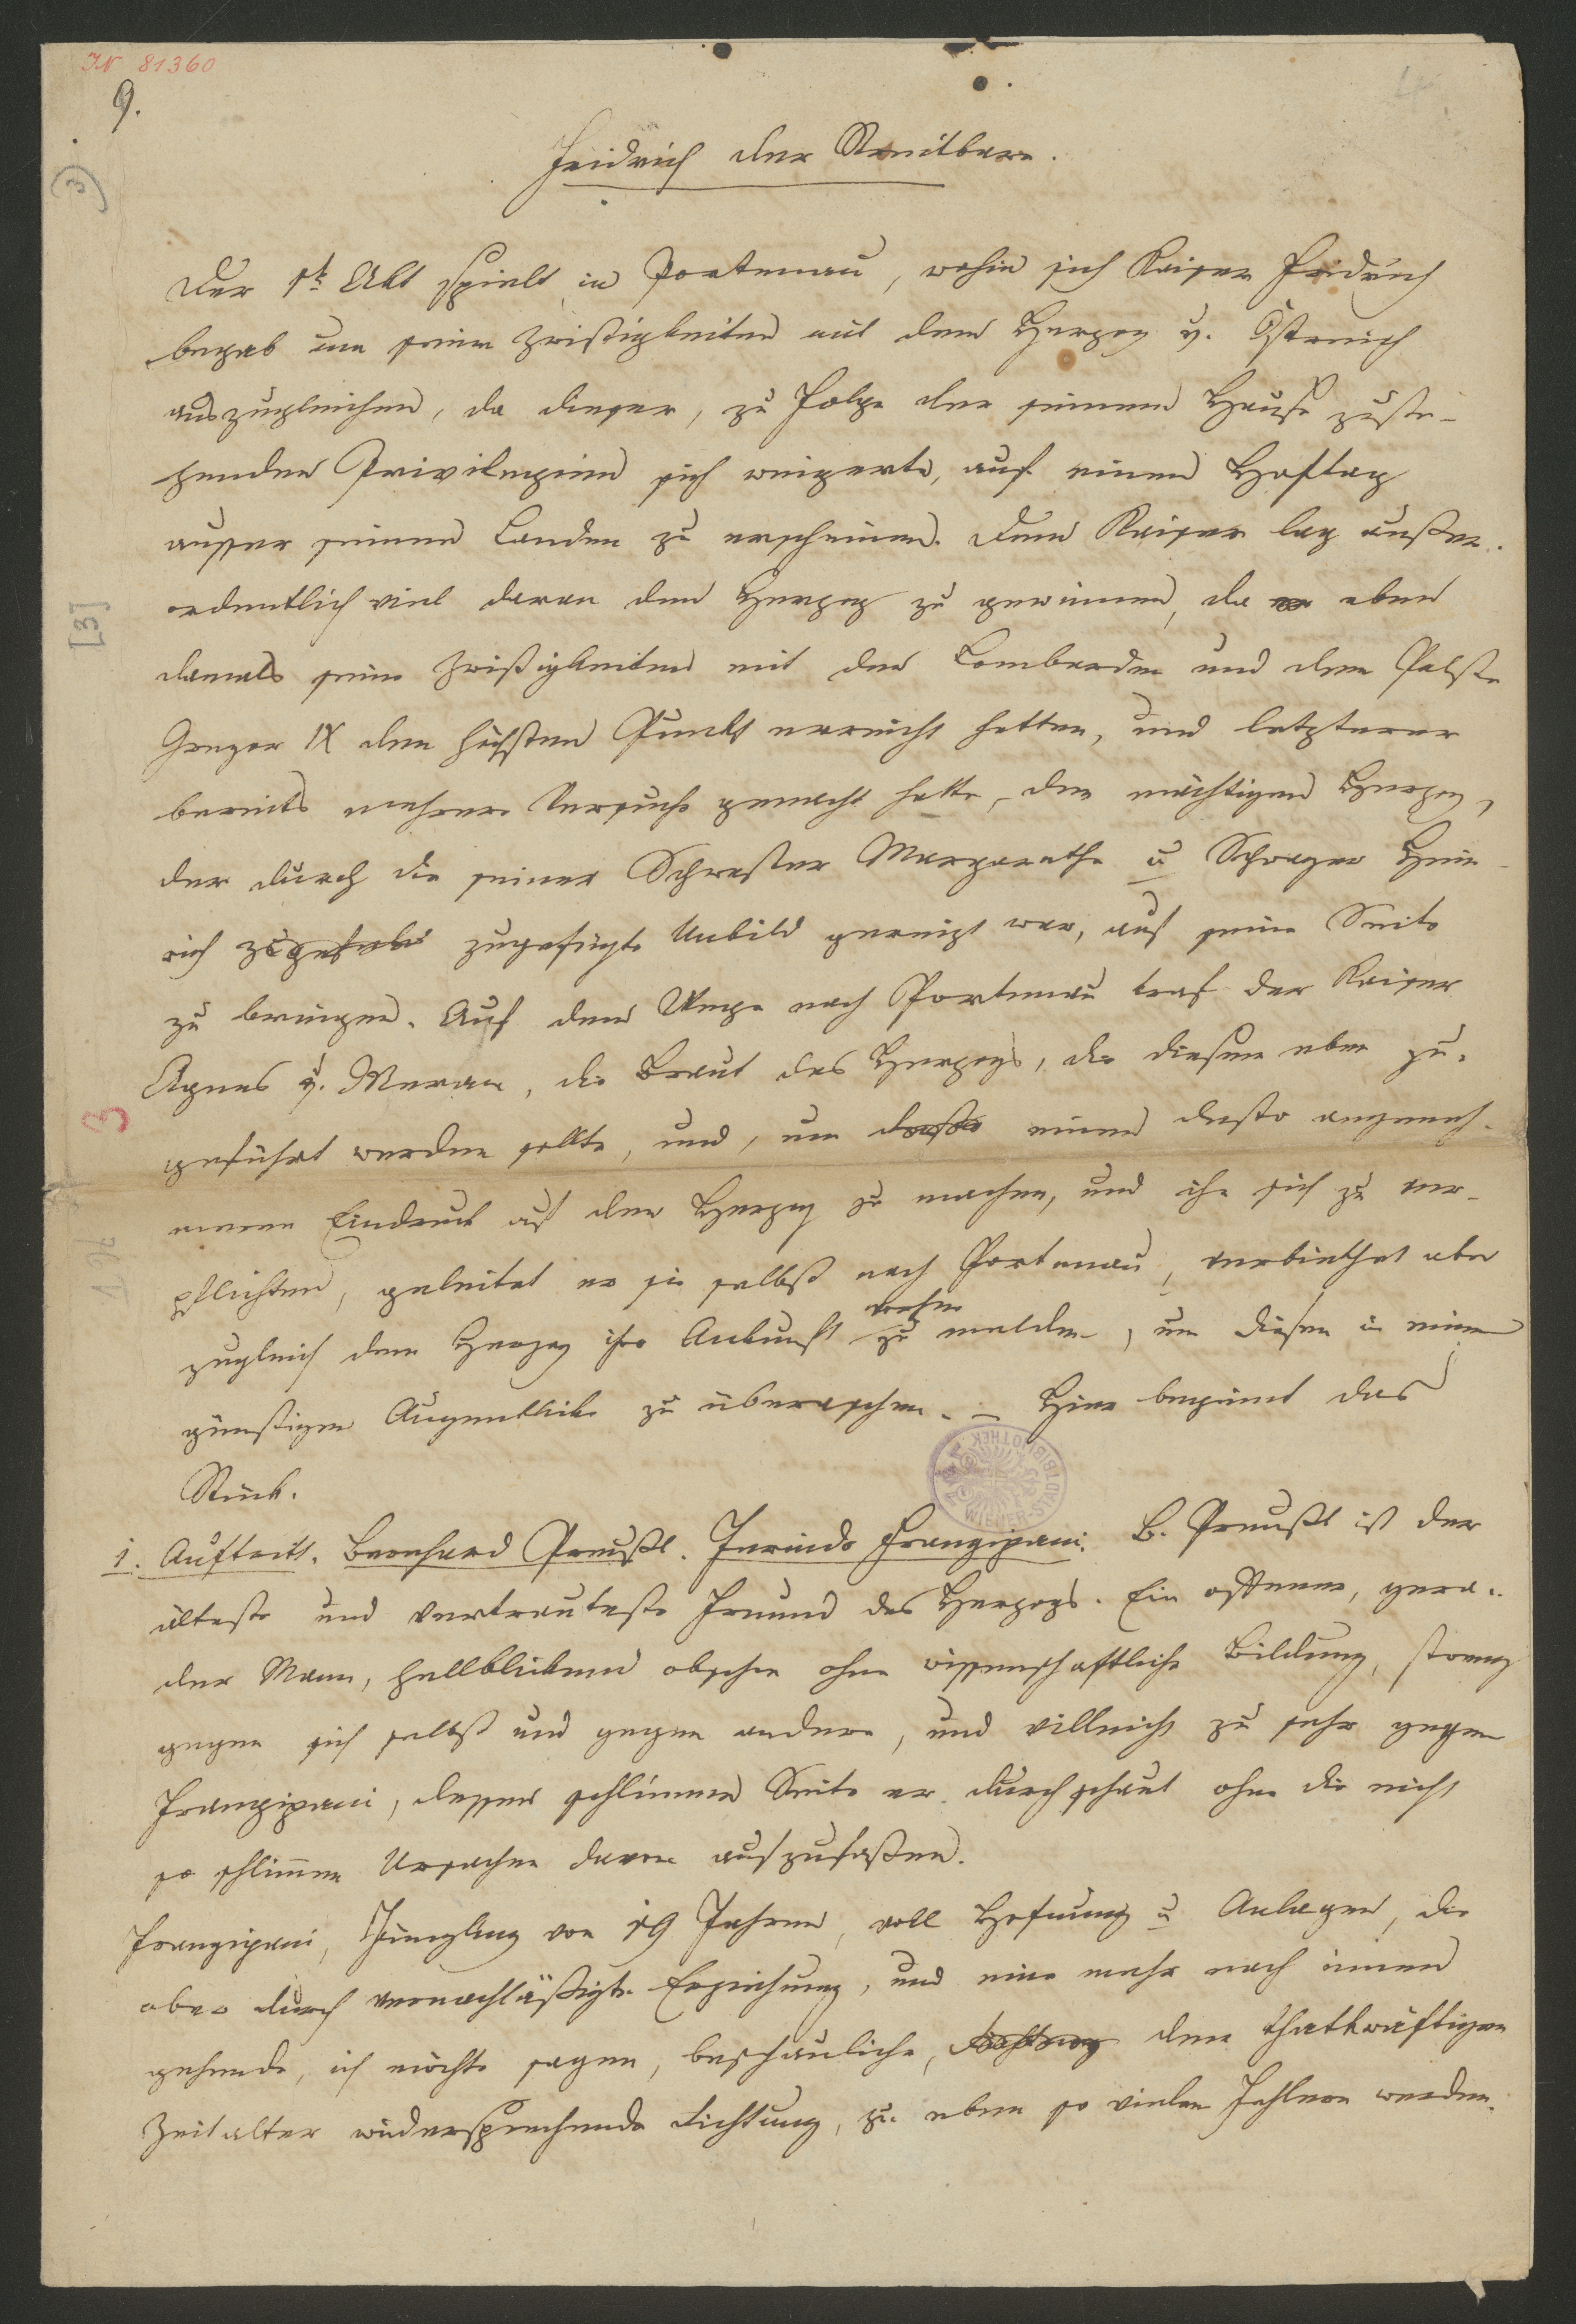 IN 81360
9.
4
3)
Fridrich der Streitbare.
Der 1te Akt spielt in Portenau, wohin sich Kaiser Fridrich
begab um seine Zwistigkeiten mit dem Herzog v. Östreich
auszugleichen, da dieser, zu Folge der seinem Hause zuste-
henden Privilegien sich weigerte, auf einem Hoftag
ausser seinen Landen zu erscheinen. Dem Kaiser lag außer-
ordentlich viel daran den Herzog zu gewinnen, da er eben
[3]
damals seine Zwistigkeiten mit den Lombarden und dem Pabste
Gregor IX den höchsten Punkt erreicht hatten, und letzterer
bereits mehrere Versuche gemacht hatte, den mächtigen Herzog,
der durch die seiner Schwester Margarethe u Schwager Hein-
rich zugefügte Unbild gereizt war, auf seine Seite
zu bringen. Auf dem Wege nach Portenau traf der Kaiser
Agnes v. Meran, die Braut des Herzogs, die diesem eben zu-
3
geführt werden sollte, und, um einen desto angeneh-
meren Eindruck auf den Herzog zu machen, und ihn sich zu ver-
pflichten, geleitet er sie selbst nach Portenau, verbiethet aber
zugleich dem Herzog ihre Ankunft zu melden, um diesen in einem
günstigen Augenblicke zu überraschen. – Hier beginnt das
Stück.
WIENER-STADTBIBLIOTHEK
1. Auftritt. Bernhard Preußl. Jerindo Frangipani. B. Preußl ist der
älteste und vertrauteste Freund des Herzogs. Ein offener, gera-
der Mann, hellblickend obschon ohne wissenschaftliche Bildung, streng
gegen sich selbst und gegen andere, und villeicht zu sehr gegen
Frangipani, dessen schlimme Seite er durchschaut ohne die nicht
so schlimmen Ursachen davon aufzufaßen.
Frangipani, Jüngling von 19 Jahren, voll Hofnung u Anlagen, die
aber durch vernachläßigte Erziehung, und eine mehr nach innen
gehende, ich möchte sagen, beschauliche, dem thatkräftigen
Zeitalter widersprechende Richtung, zu eben so vielen Fehlern werden.